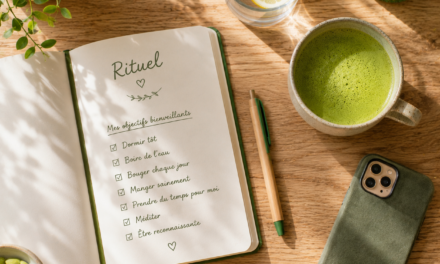 Rituel
Mes objectifs bienveillants
Dormir tôt
Boire de l'eau
Bouger chaque jour
Manger sainement
Prendre du temps pour moi
Méditer
Être reconnaissante